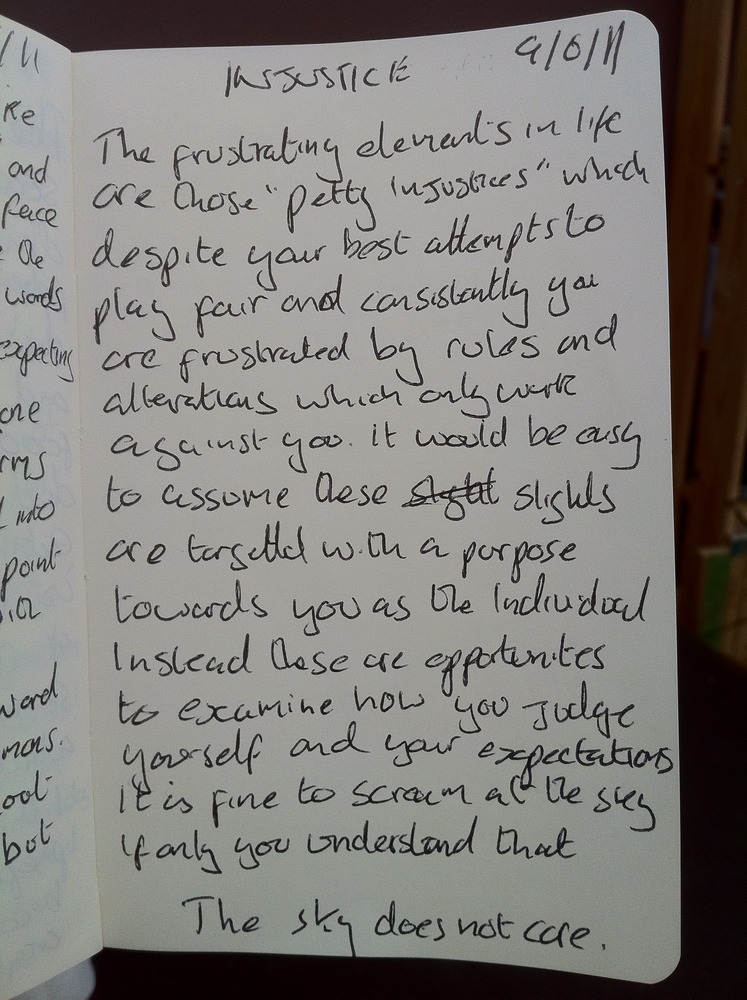 /11
Re
and
face
the
words
expecting
one
rms
into
point
word
mons.
oot
but
INJUSTICE
9/6/11
The frustrating elements in life
are those "petty injustices" which
despite your best attempts to
play fair and consistently you
are frustrated by rules and
alterations which only work
against you. it would be easy
to assume these slight slights
are targetted with a purpose
towards you as the individual
Instead these are opportunites
to examine how you judge
yourself and your expectations
It is fine to scream at the sky
If only you understand that
The sky does not care.